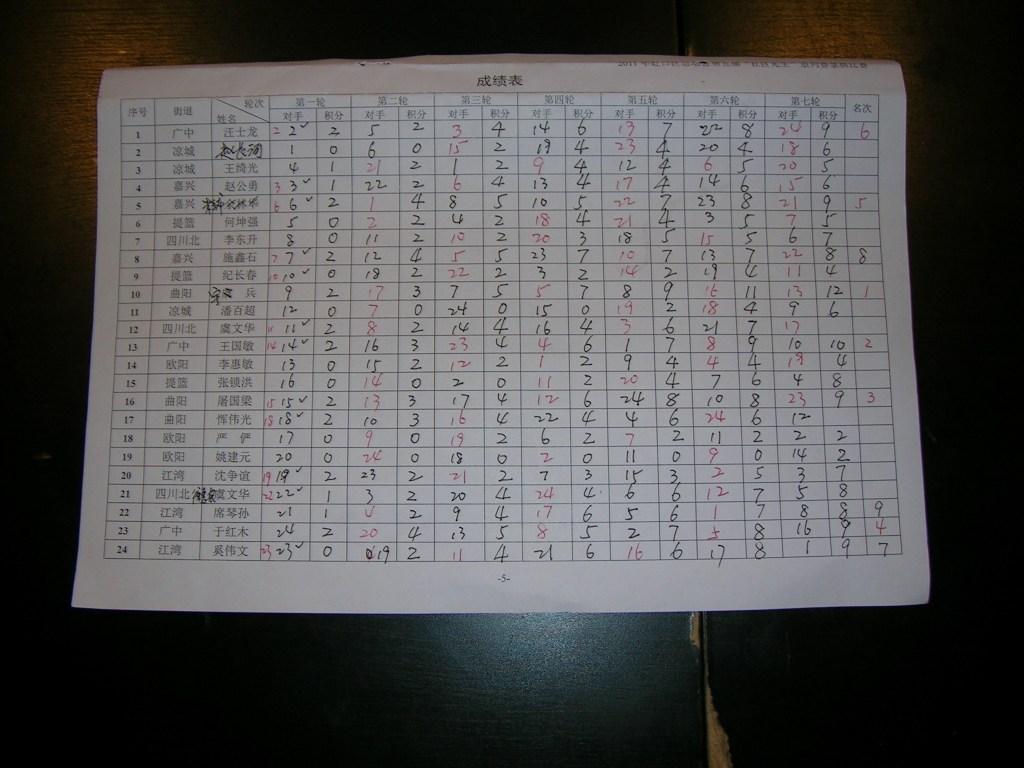 成绩表
序号 街道 轮次 姓名 第一轮 第二轮 第三轮 第四轮 第五轮 第六轮 第七轮 名次
对手 积分 对手 积分 对手 积分 对手 积分 对手 积分 对手 积分 对手 积分
1 广中 汪士龙 2 2✓ 2 5 2 3 4 14 6 13 7 22 8 24 9 6
2 凉城 1 0 6 0 15 2 19 4 23 4 20 4 18 6
3 凉城 王绮光 4 1 21 2 1 2 9 4 12 4 6 5 20 5
4 嘉兴 赵公勇 3 3✓ 1 22 2 6 4 13 4 17 4 14 6 15 6
5 嘉兴 6 6✓ 2 1 4 8 5 10 5 22 7 23 8 21 9 5
6 提篮 何坤强 5 0 2 2 4 2 18 4 21 4 3 5 7 5
7 四川北 李东升 8 0 11 2 10 2 20 3 18 5 15 5 6 7
8 嘉兴 施鑫石 7 7✓ 2 12 4 5 5 23 7 10 7 13 7 22 8 8
9 提篮 纪长春 10 10✓ 0 18 2 22 2 3 2 14 2 19 4 11 4
10 曲阳 兵 9 2 17 3 7 5 5 7 8 9 16 11 13 12 1
11 凉城 潘百超 12 0 7 0 24 0 15 0 19 2 18 4 9 6
12 四川北 虞文华 11 11✓ 2 8 2 14 4 16 4 3 6 21 7 17
13 广中 王国敏 14 14✓ 2 16 3 23 4 4 6 1 7 8 9 10 10 2
14 欧阳 李惠敏 13 0 15 2 12 2 1 2 9 4 4 4 19 4
15 提篮 张锁洪 16 0 14 0 2 0 11 2 20 4 7 6 4 8
16 曲阳 屠国梁 15 15✓ 2 13 3 17 4 12 6 24 8 10 8 23 9 3
17 曲阳 恽伟光 18 18✓ 2 10 3 16 4 22 4 4 6 24 6 12
18 欧阳 严 俨 17 0 9 0 19 2 6 2 7 2 11 2 2 2
19 欧阳 姚建元 20 0 24 0 18 0 2 0 11 0 9 0 14 2
20 江湾 沈争谊 19 19✓ 2 23 2 21 2 7 3 15 3 2 5 3 7
21 四川北 虞文华 22 22✓ 1 3 2 20 4 24 4 6 6 12 7 5 8
22 江湾 席琴孙 21 1 4 2 9 4 17 6 5 6 1 7 8 8 9
23 广中 于红木 24 2 20 4 13 5 8 5 2 7 5 8 16 9 4
24 江湾 奚伟文 23 23✓ 0 19 2 11 4 21 6 16 6 17 8 1 9 7
-5-